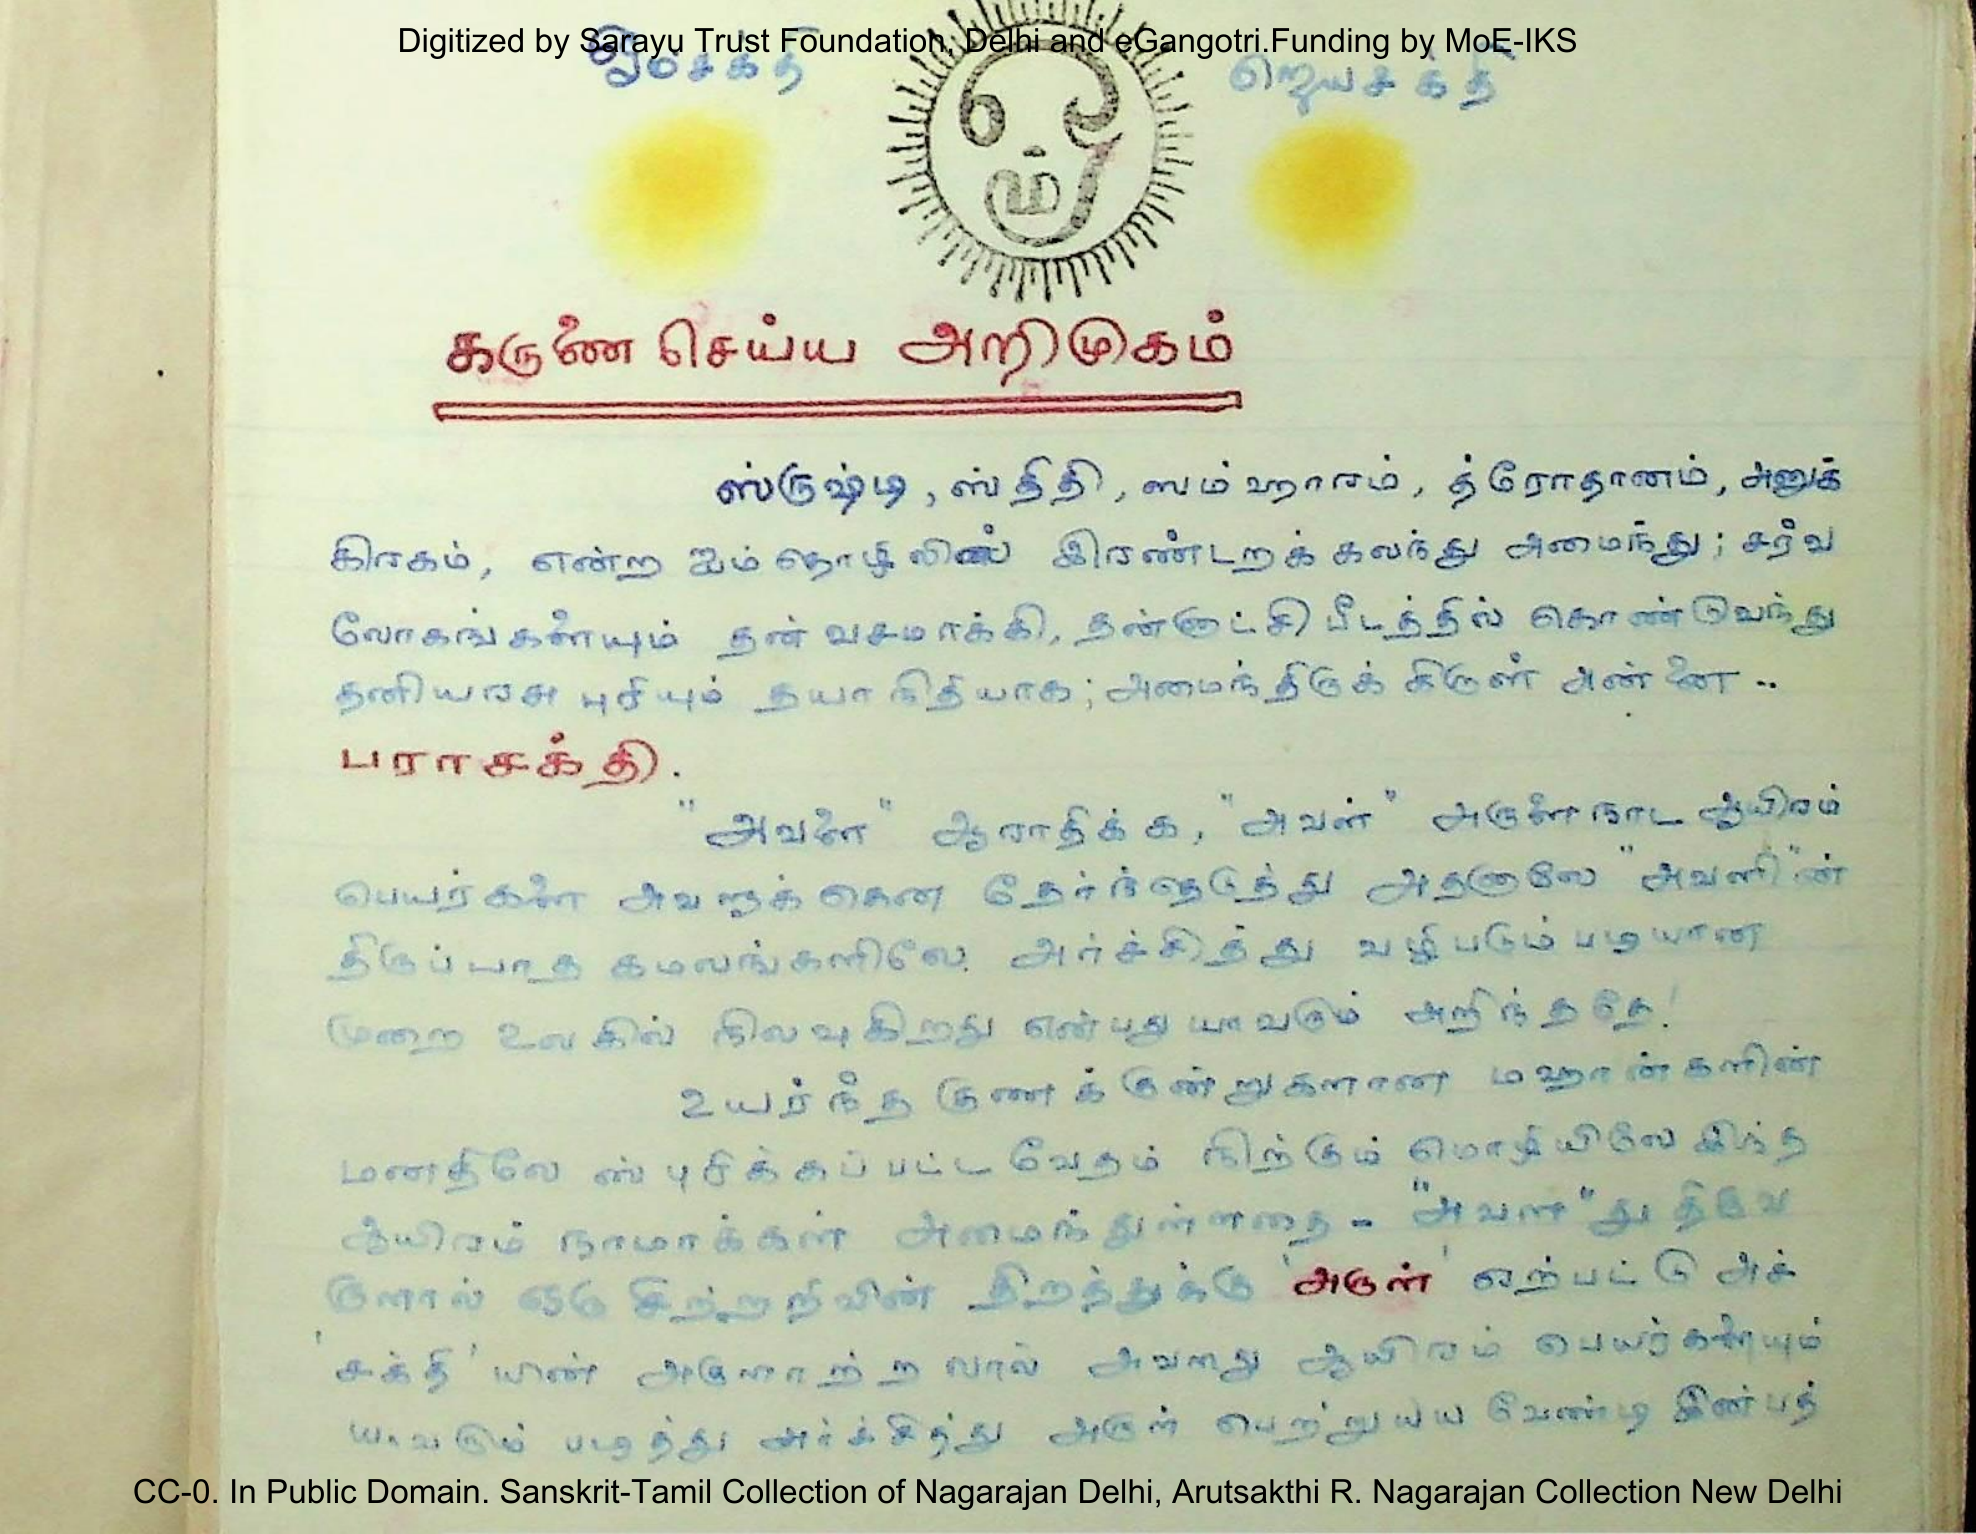 Digitized by Sarayu Trust Foundation, Delhi and eGangotri.Funding by MoE-IKS
ஓம்சக்தி ஓம் ஜெயசக்தி
கருணை செய்ய அறிமுகம்
ஸ்ருஷ்டி, ஸ்திதி, ஸம்ஹாரம், த்ரோதானம், அனுக்
கிரகம், என்ற ஐம்தொழிலில் இரண்டறக் கலந்து அமைந்து; சர்வ
லோகங்களையும் தன் வசமாக்கி, தன்னாட்சி பீடத்தில் கொண்டுவந்து
தனியரசு புரியும் தயாநிதியாக; அமைந்திருக்கிருள் அன்னை ..
பராசக்தி.
"அவளை" ஆராதிக்க, "அவள்" அருளை நாட ஆயிரம்
பெயர்களை அவளுக்கென தேர்ந்தெடுத்து அதனாலே "அவளி"ன்
திருப்பாத கமலங்களிலே அர்ச்சித்து வழிபடும்படியான
முறை உலகில் நிலவுகிறது என்பது யாவரும் அறிந்ததே!
உயர்ந்த குணக்குன்றுகளான மஹான்களின்
மனதிலே ஸ்புரிக்கப்பட்ட வேதம் நிற்கும் மொழியிலே இந்த
ஆயிரம் நாமாக்கள் அமைந்துள்ளதை - "அவள"து திருவ
ருளால் ஒரு சிற்றறிவின் திறத்துக்கு 'அருள்' ஏற்பட்டு அச்
'சக்தி'யின் அருளாற்றலால் அவளது ஆயிரம் பெயர்களையும்
யாவரும் படித்து அர்ச்சித்து அருள் பெற்றுய்ய வேண்டி இன்பத்
CC-0. In Public Domain. Sanskrit-Tamil Collection of Nagarajan Delhi, Arutsakthi R. Nagarajan Collection New Delhi